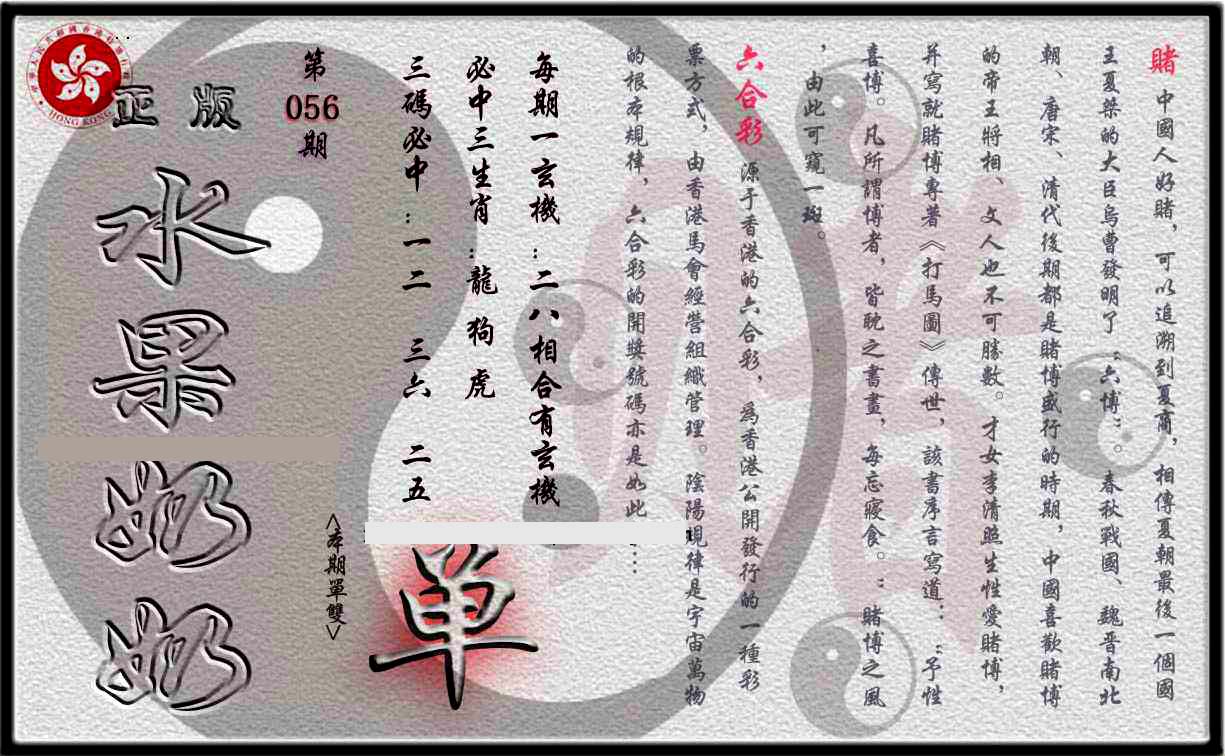 賭 中國人好賭，可以追溯到夏商，相傳夏朝最後一個國
王夏桀的大臣烏曹發明了“六博”。春秋戰國、魏晉南北
朝、唐宋、清代後期都是賭博盛行的時期，中國喜歡賭博
的帝王將相、文人也不可勝數。才女李清照生性愛賭博，
并寫就賭博專著《打馬圖》傳世，該書序言寫道：“予性
喜博。凡所謂博者，皆耽之書畫，每忘寢食。”賭博之風
，由此可窺一斑。
六合彩 源于香港的六合彩，為香港公開發行的一種彩
票方式，由香港馬會經營組織管理。陰陽規律是宇宙萬物
的根本規律，六合彩的開獎號碼亦是如此……
每期一玄機：二八相合有玄機
必中三生肖：龍 狗 虎
三碼必中：一二 三六 二五
单
<本期單雙>
第056期
正版
水果奶奶
HONG KONG